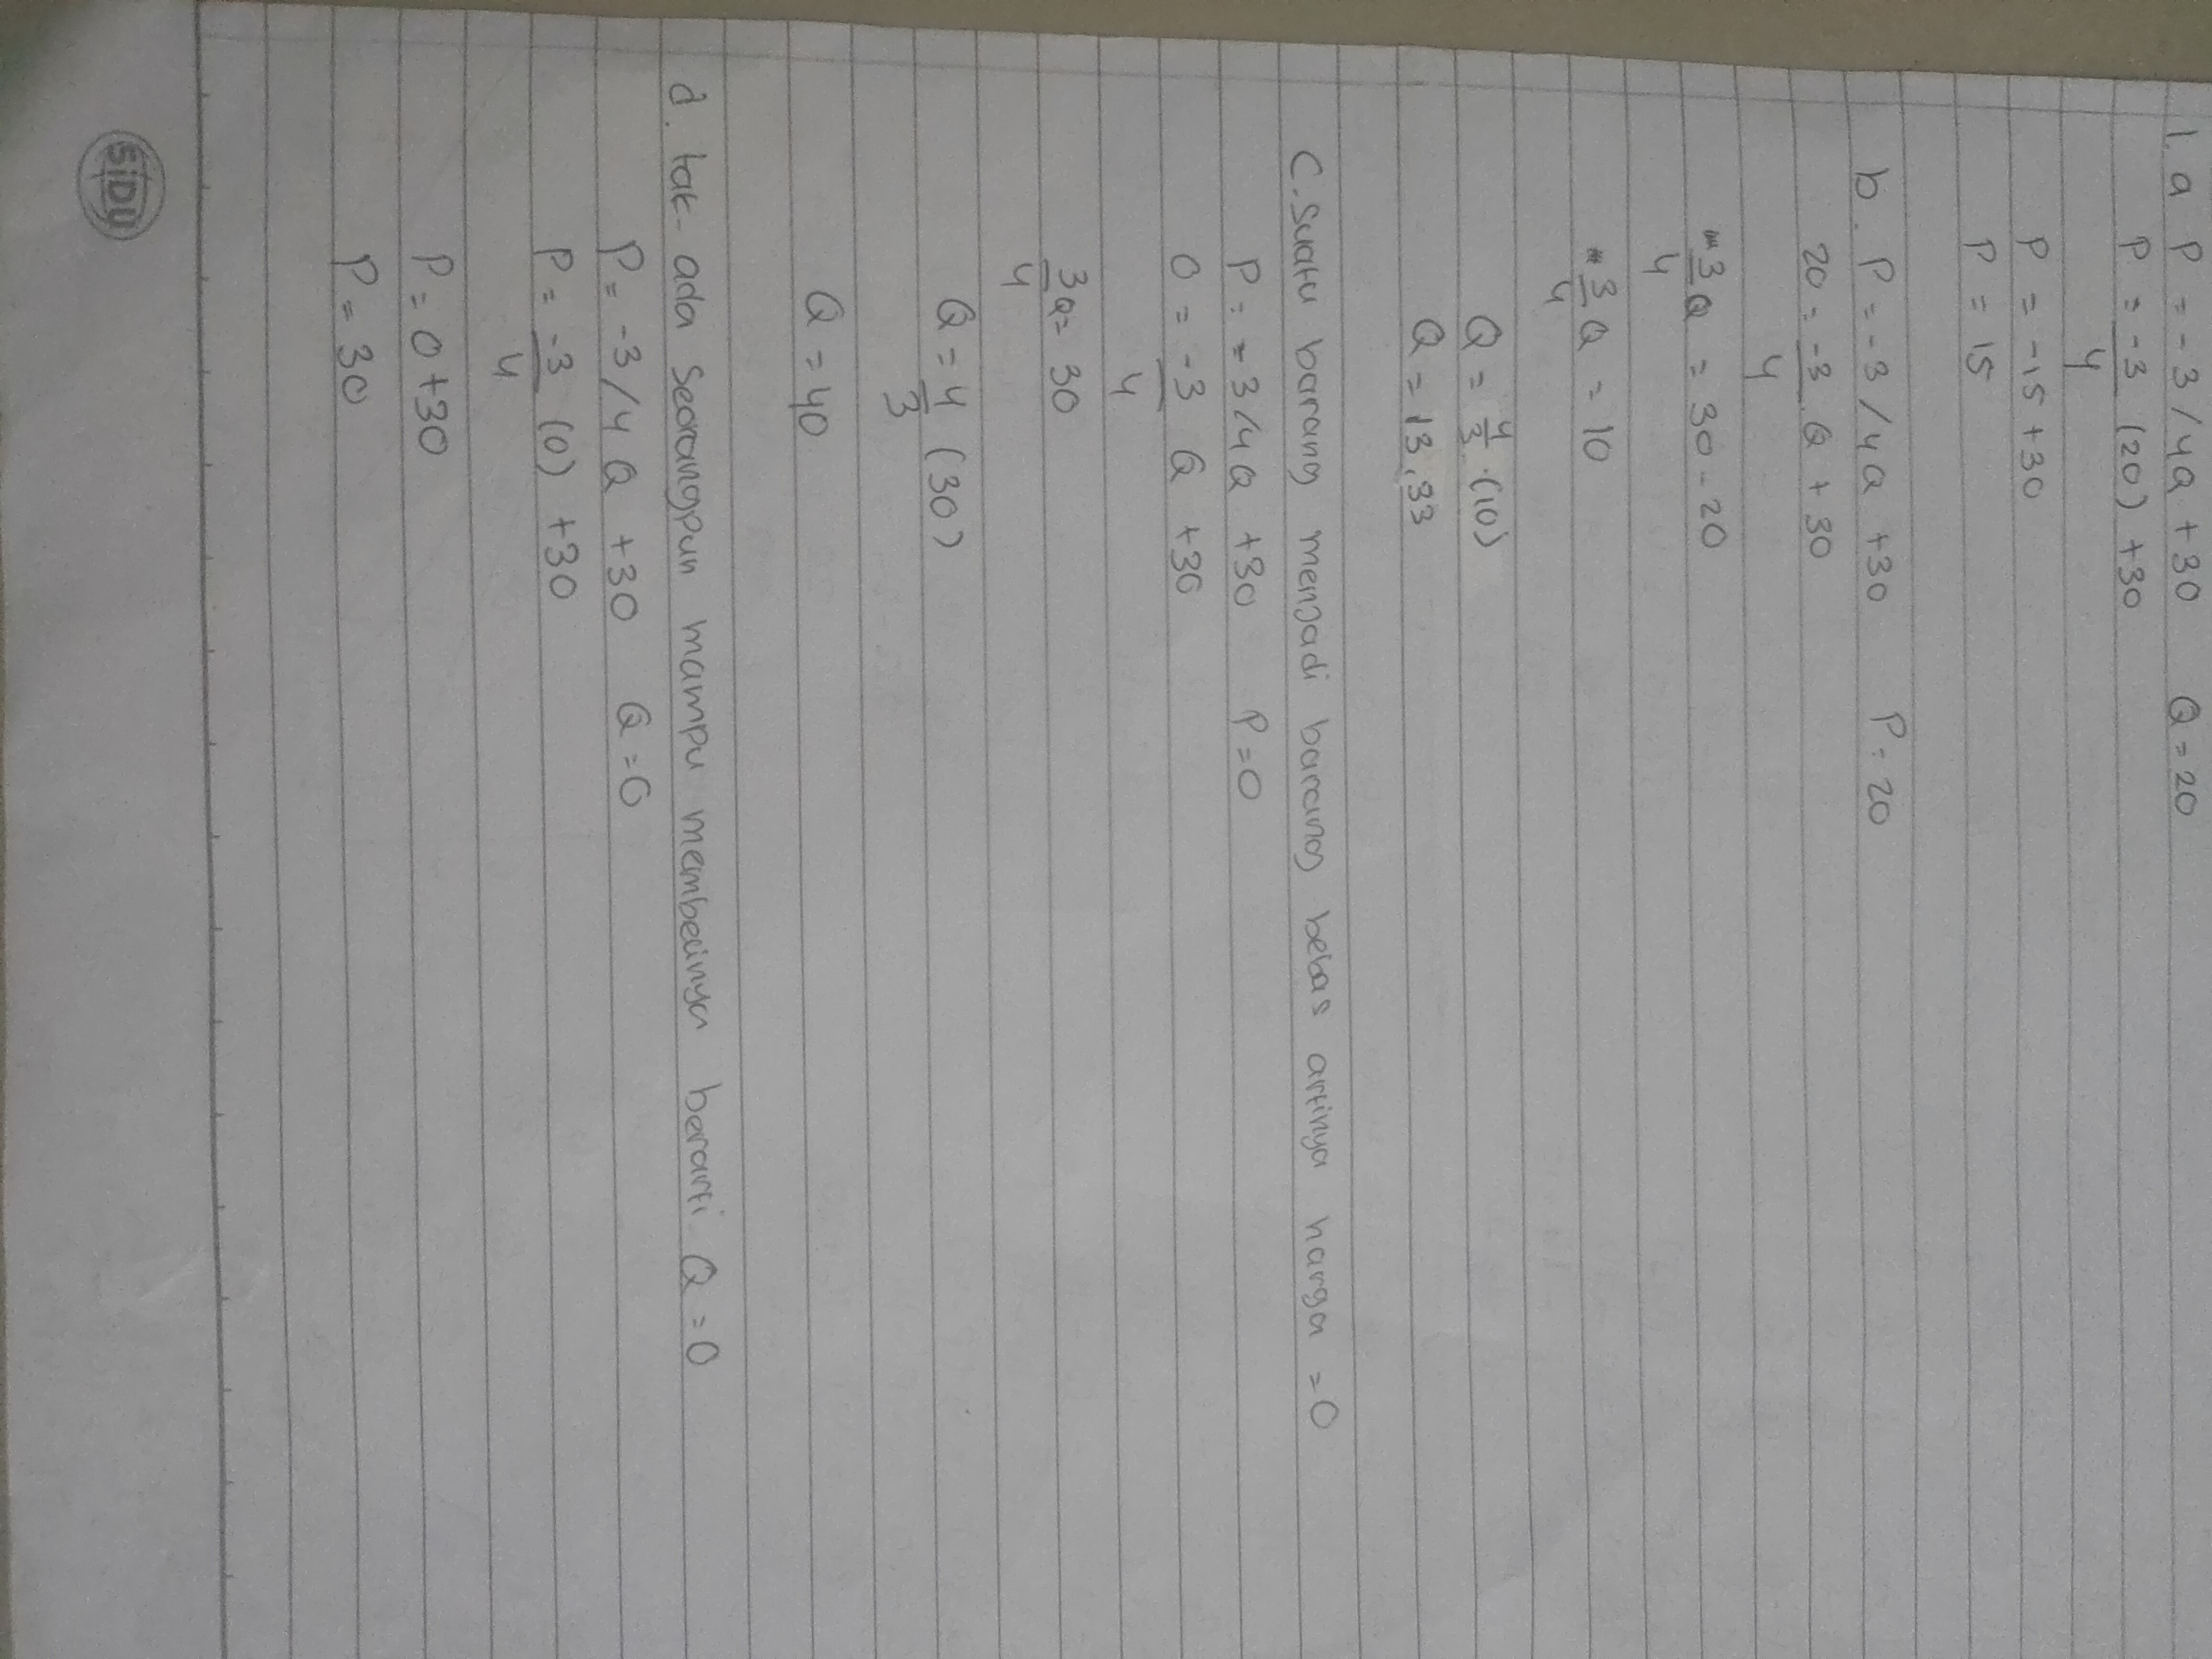 1. a P = -3/4Q +30 Q = 20
P = -3/4 (20) +30
P = -15 +30
P = 15
b. P = -3/4Q +30 P = 20
20 = -3/4 Q + 30
3/4 Q = 30 - 20
3/4 Q = 10
Q = 4/3 . (10)
Q = 13,33
C. Suatu barang menjadi barang bebas artinya harga = 0
P = -3/4Q +30 P = 0
0 = -3/4 Q +30
3/4 Q = 30
Q = 4/3 (30)
Q = 40
d. tak ada seorangpun mampu membelinya berarti Q = 0
P = -3/4 Q +30 Q = 0
P = -3/4 (0) +30
P = 0+30
P = 30
SiDU